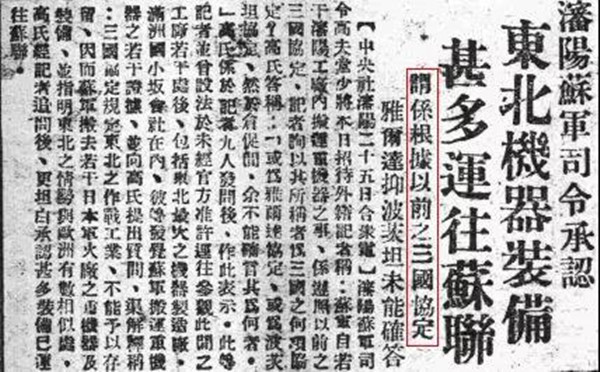 瀋陽蘇軍司令承認
東北機器裝備
甚多運往蘇聯
謂係根據以前之三國協定
雅爾達抑波茨坦未能確答
【中央社瀋陽二十五日合衆電】瀋陽蘇軍司
令高夫堂少將本日招待外籍記者稱：蘇軍自若
干瀋陽工廠內搬運機器之事、係遵照以前之
三國協定、記者詢以其所稱者爲三國之何項協
定？高氏答稱：「或爲雅爾達協定、或爲波茨
坦協定、然於倉促間、余不能確言其爲何者。
」高氏係於記者九人發問後、作此表示。此等
記者並曾設法於未經官方准許逕往參觀此間之
工廠若干處後、包括東北最大之機器製造廠、
滿洲國小坂會社在內、彼等發覺蘇軍搬運重機
器之若干證據、並向高氏提出質問、渠解釋稱
：三國協定規定東北之作戰工業、不能予以存
留、因而蘇軍搬去若干日本軍火廠之重機器及
裝備、並指明東北之情勢與歐洲有數相似處。
高氏經記者追問後、更坦白承認甚多裝備已運
往蘇聯。